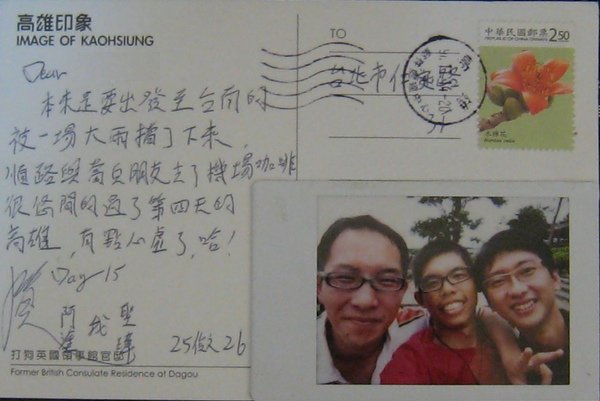 高雄印象
IMAGE OF KAOHSIUNG
Dear
本來是要出發至台南的
被一場大雨擋了下來,
順路與高貞朋友去了機場咖啡
很悠閒的過了第四天的
高雄,有點心虛了,哈!
Day 15
阿
我
聖
打狗英國領事館官邸
Former British Consulate Residence at Dagou
TO
台北市信義區
中華民國郵票
REPUBLIC OF CHINA (TAIWAN)
2.50
木棉花